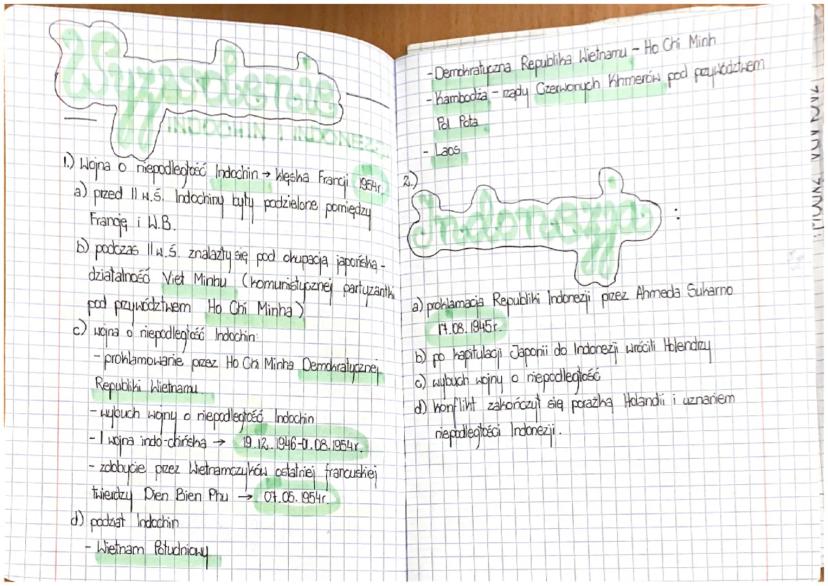 Wyzwolenie
INDOCHIN I INDONEZJI
1.) Wojna o niepodległość Indochin → klęska Francji 1954r.
a) przed II w.ś. Indochiny były podzielone pomiędzy
Francję i W.B.
b) podczas II w.ś. znalazły się pod okupacją japońską -
działalność Viet Minhu (komunistycznej partyzantki
pod przywództwem Ho Chi Minha)
c) wojna o niepodległość Indochin:
- proklamowanie przez Ho Chi Minha Demokratycznej
Republiki Wietnamu
- wybuch wojny o niepodległość Indochin
- I wojna indo-chińska → 19.12.1946-01.08.1954r.
- zdobycie przez Wietnamczyków ostatniej francuskiej
twierdzy Dien Bien Phu → 07.05.1954r.
d) podział Indochin
- Wietnam Południowy
- Demokratyczna Republika Wietnamu - Ho Chi Minh
- Kambodża - rządy Czerwonych Khmerów pod przywództwem
Pol Pota
- Laos
2.)
Indonezja :
a) proklamacja Republiki Indonezji przez Ahmeda Sukarno
17.08.1945r.
b) po kapitulacji Japonii do Indonezji wrócili Holendrzy
c) wybuch wojny o niepodległość
d) konflikt zakończył się porażką Holandii i uznaniem
niepodległości Indonezji.